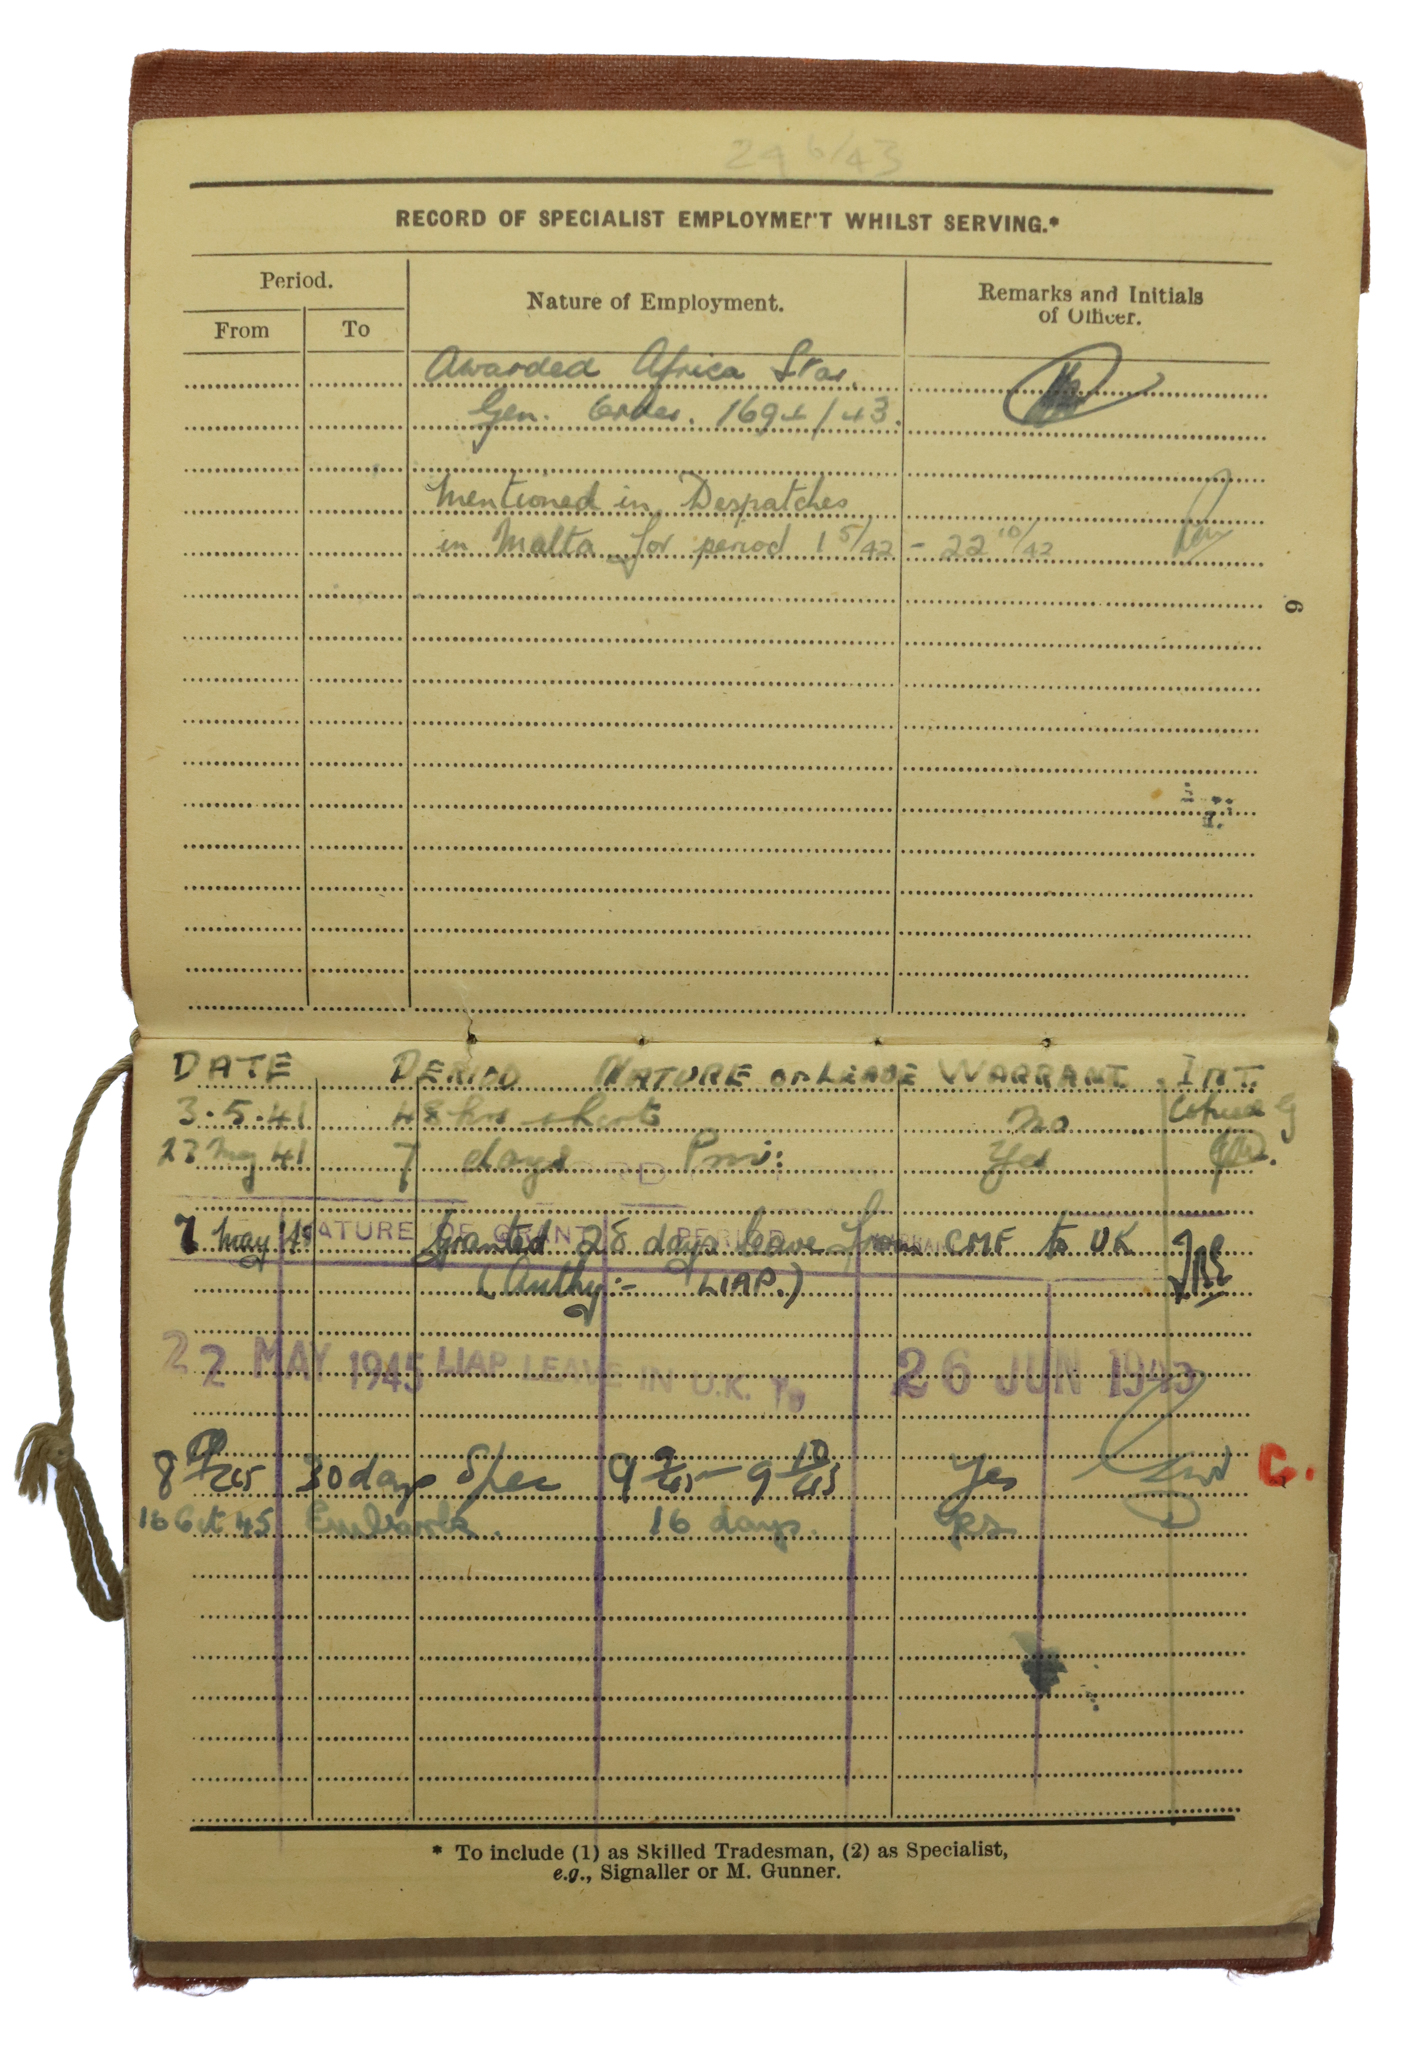 29 6/43
RECORD OF SPECIALIST EMPLOYMENT WHILST SERVING.*
Period.
Nature of Employment.
Remarks and Initials
of Officer.
From To
Awarded Africa Star.
Gen. Order. 1694/43.
Mentioned in Despatches
in Malta for period 1 5/42 - 22 10/42
6
DATE PERIOD NATURE OF LEAVE WARRANT INT.
3.5.41 48 hrs short no
May 41 7 days Priv: Yes
NATURE OF GRANT PERIOD
7 May 45 Granted 28 days leave from CMF to UK
(Authy:- LIAP.)
22 MAY 1945 LIAP LEAVE IN U.K. To 26 JUN 1945
8 9/45 30 days 9 9/45 - 9 10/45 Yes C.
16 Oct 45 Embark. 16 days. yes
* To include (1) as Skilled Tradesman, (2) as Specialist,
e.g., Signaller or M. Gunner.